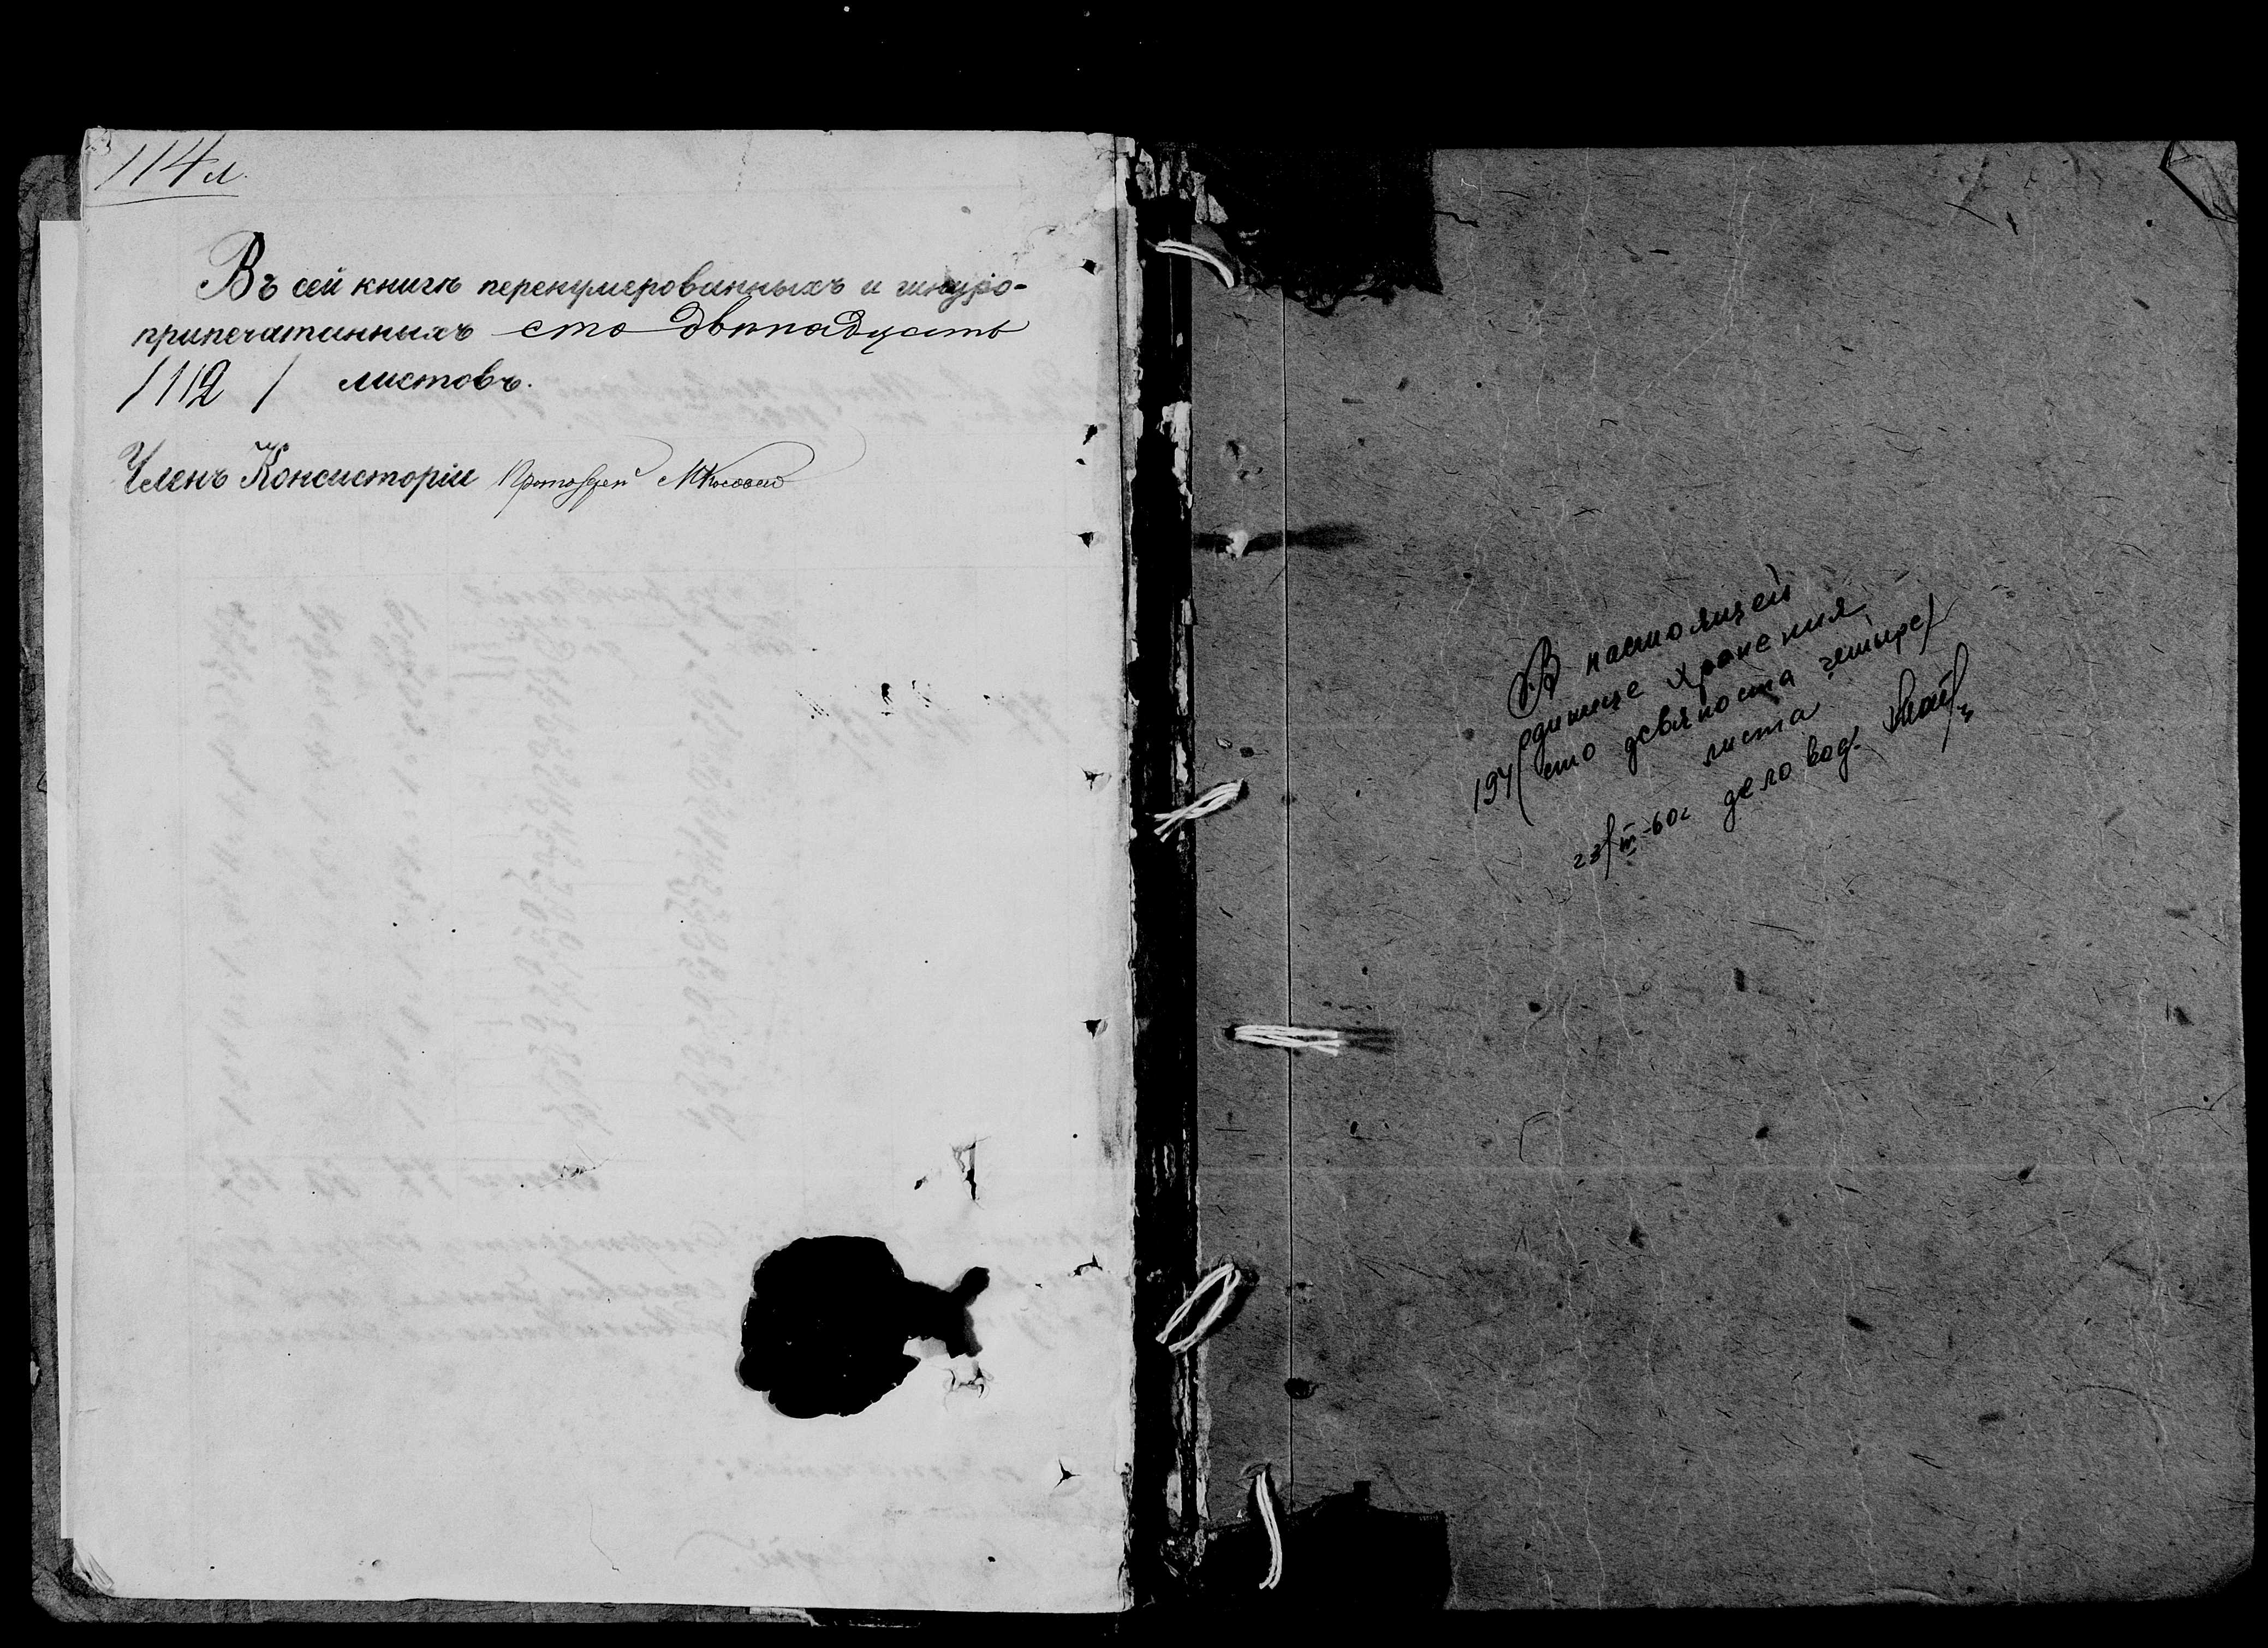 114 л.
Въ сей книгѣ перенумерованныхъ и шнуро-
припечатанныхъ сто двѣнадцать
/112/ листовъ.
Членъ Консисторіи Протоіерей
В настоящей
единице хранения
194 (сто девяноста четыре)
листа
23/III-60г делопод.